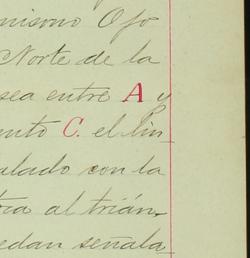 mismo Ojo
Norte de la
sea entre A y
ento C. el lin-
ulado con la
tra al trián-
edan señala-